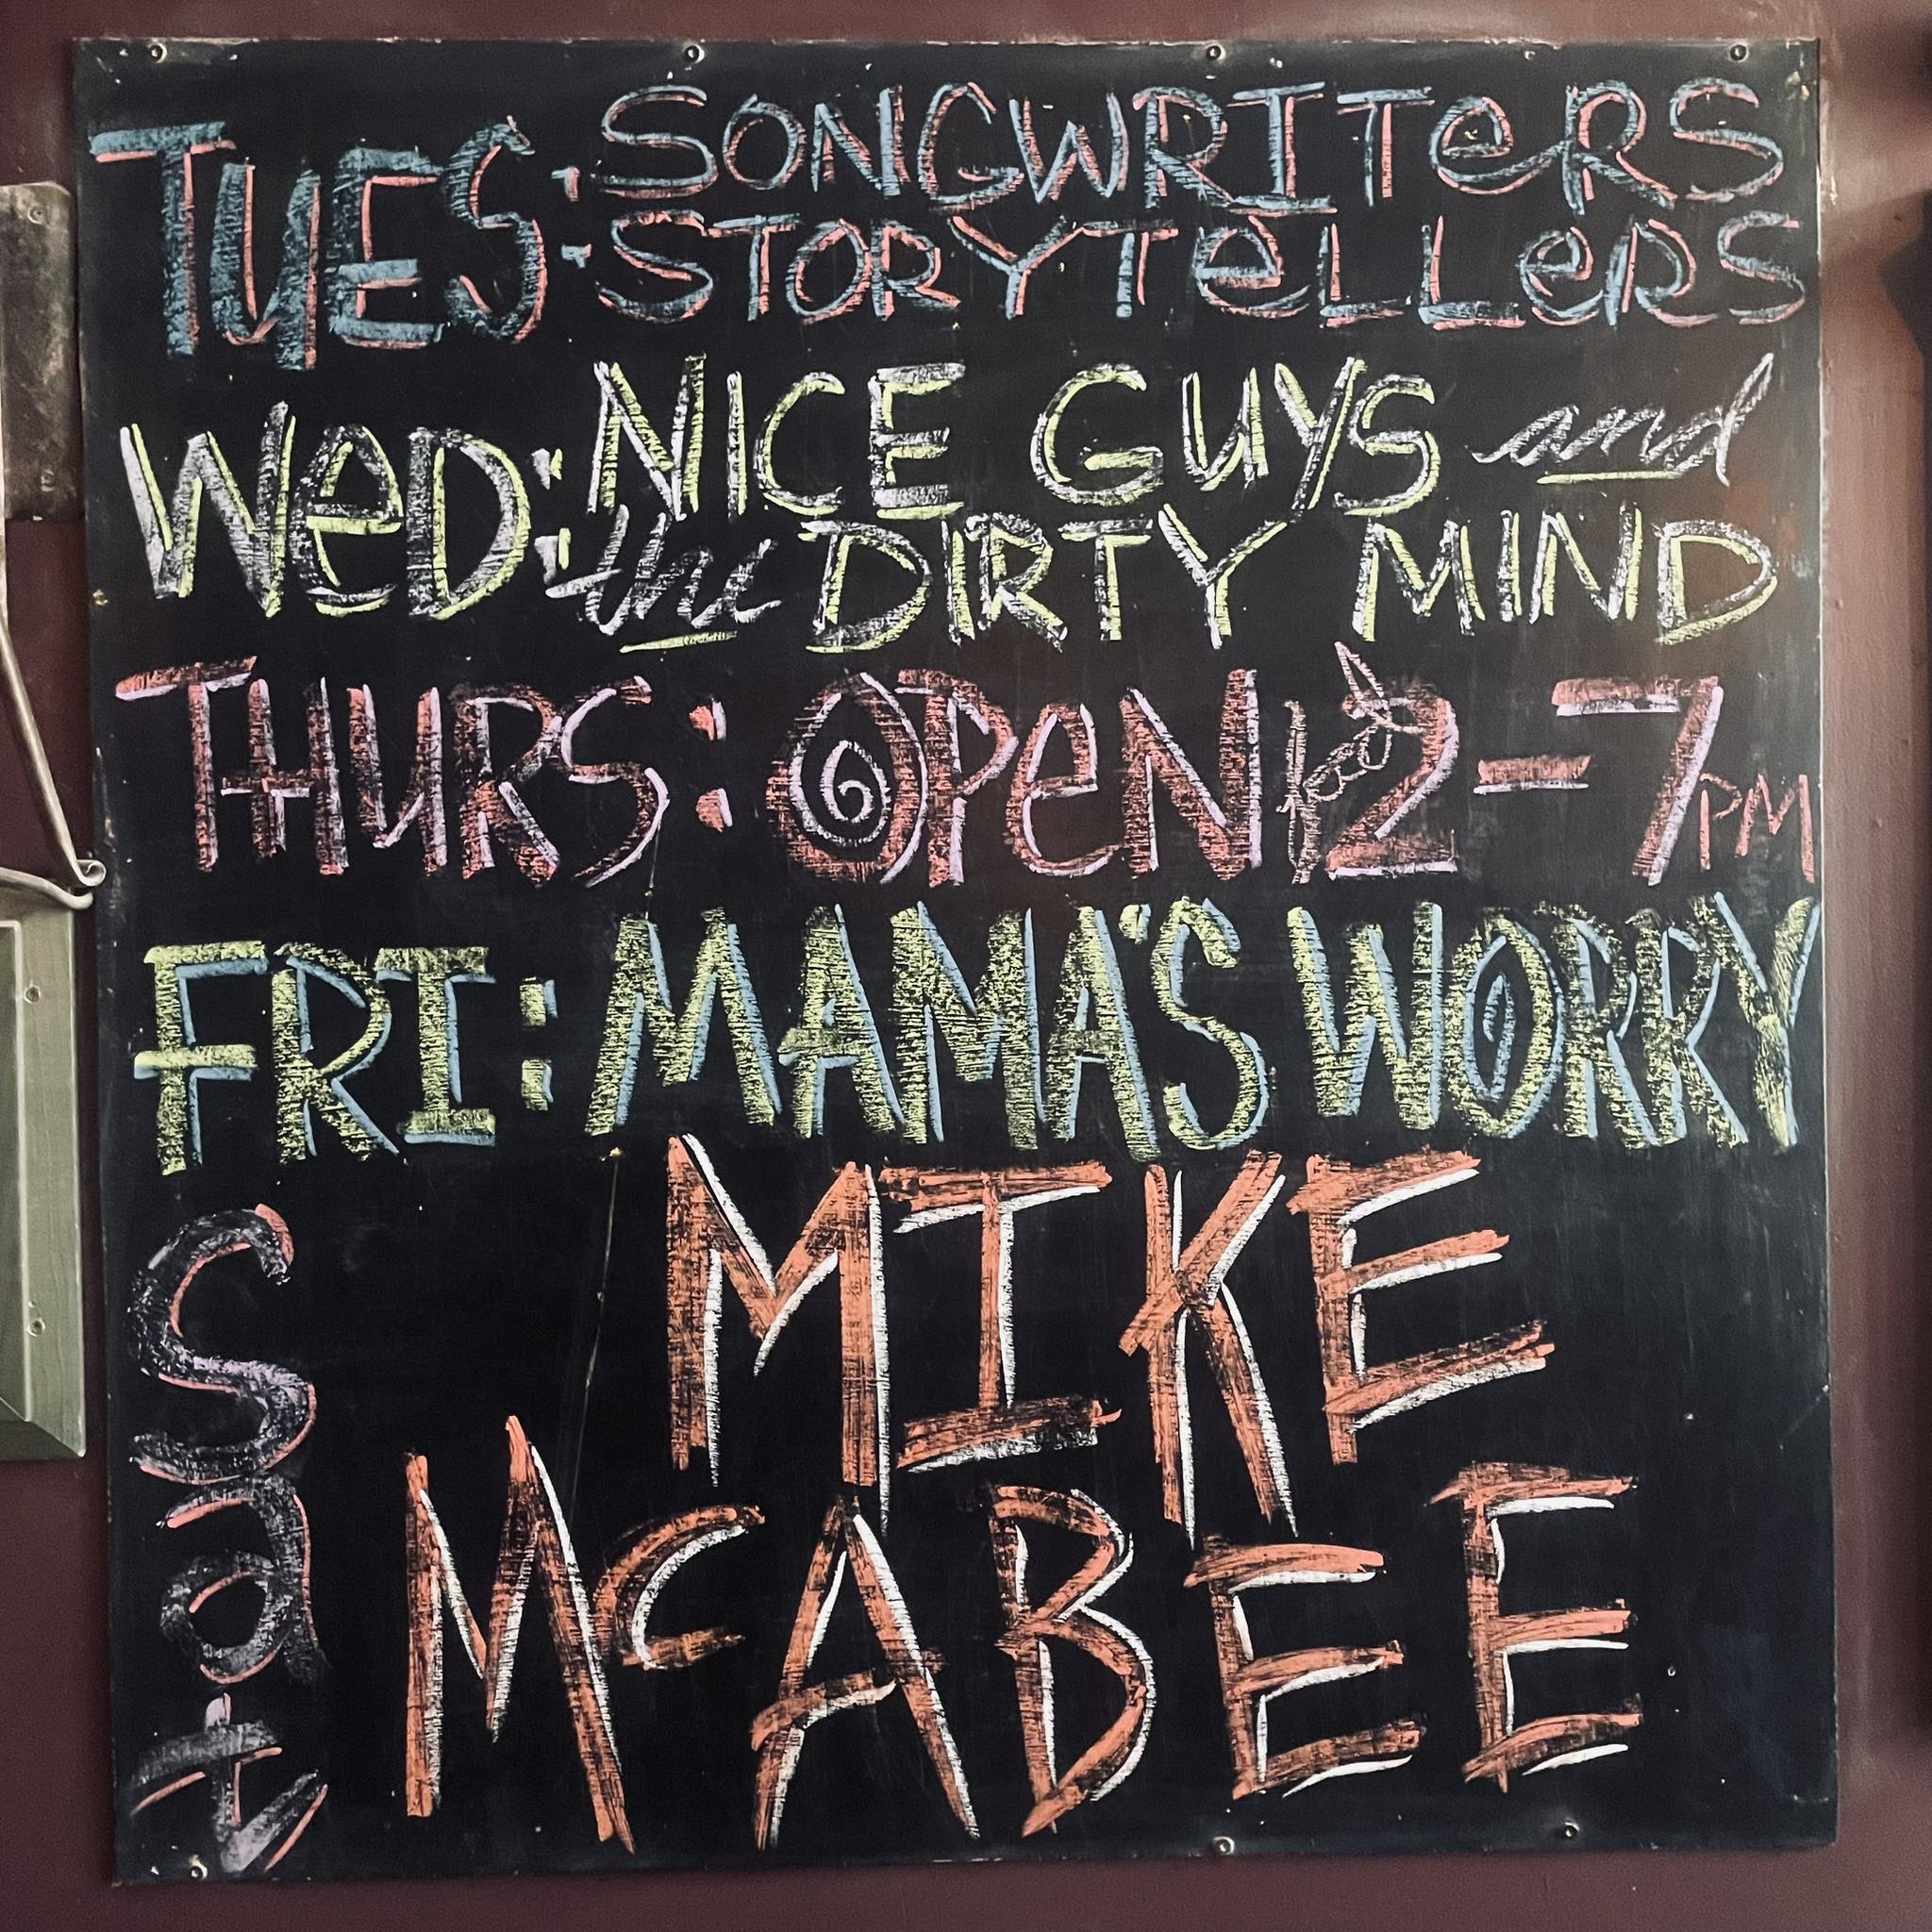 TUES: SONGWRITERS
STORYTeLLeRS
WeD: NICE GUYS and
the DIRTY MIND
THURS: OPeN 12-7PM
FRI: MAMA'S WORRY
Sat MIKE
McABEE